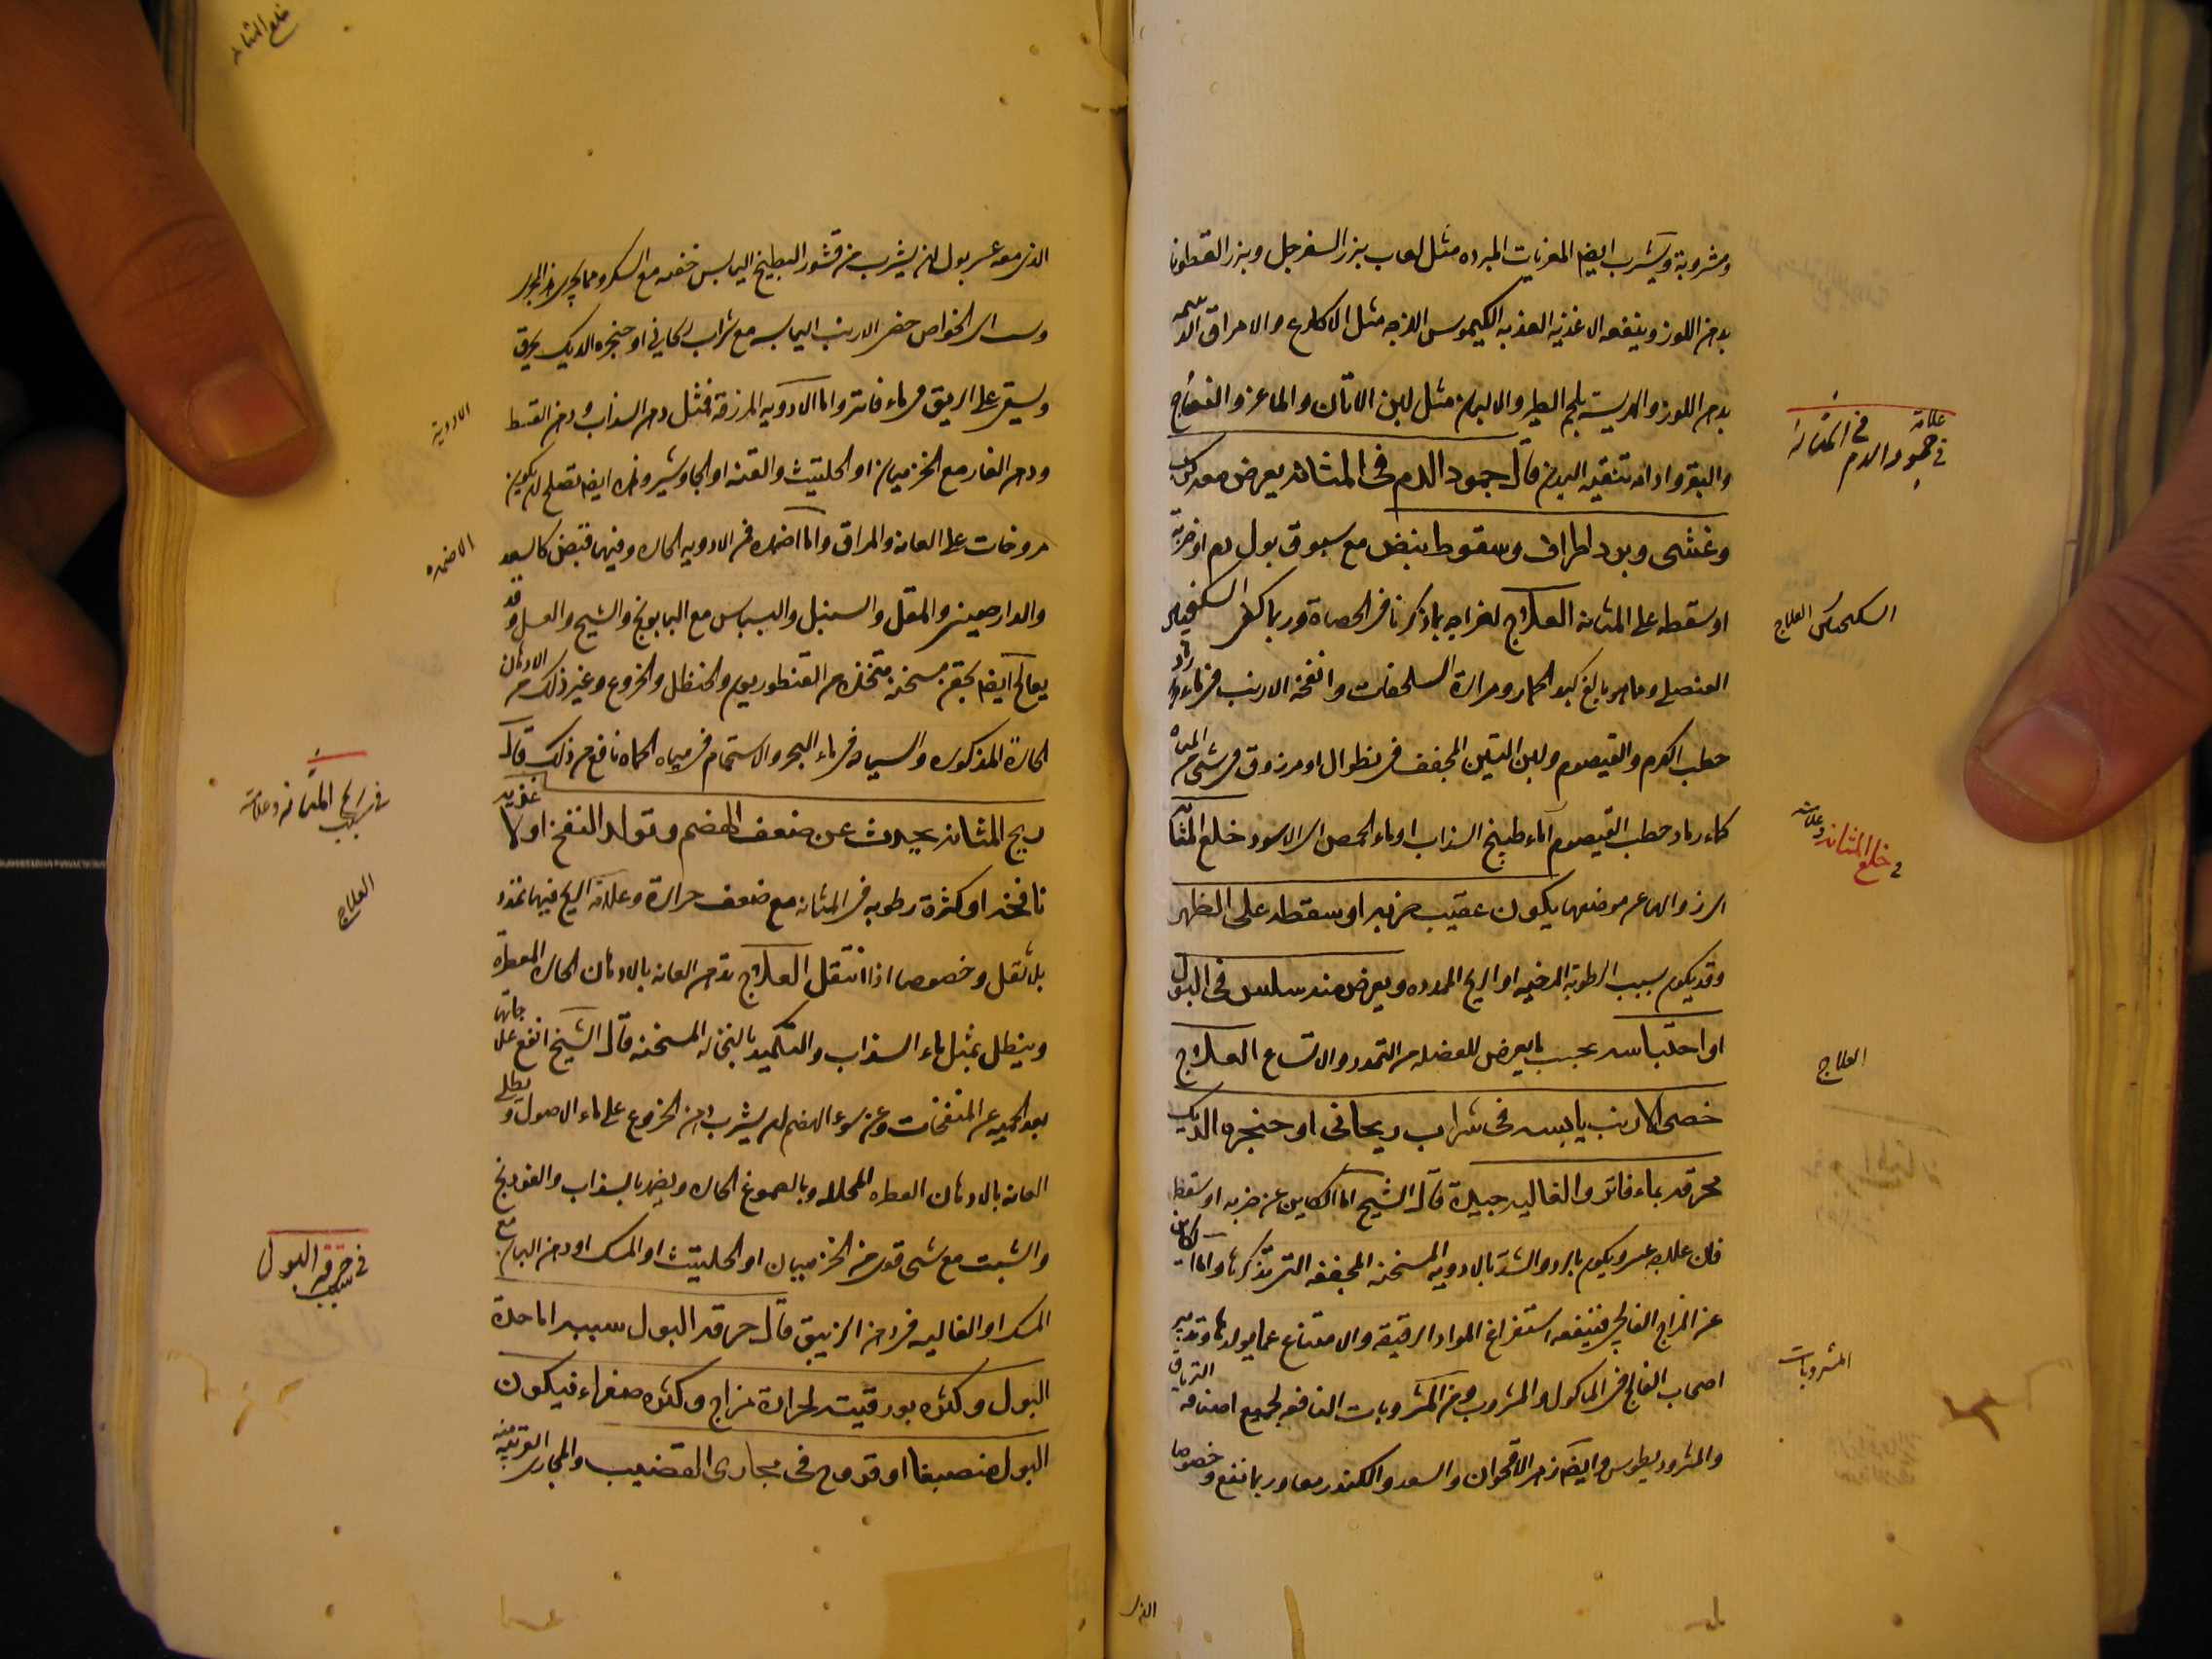 ومشروبة ويشرب ايضا المغريات المبرده مثل لعاب بزر السفرجل وبزر القطونا
بدهن اللوز وينفعه الاغذيه العذبه الكيموس اللزجه مثل الاكارع والامراق الدسمه
بدهن اللوز والهريسة بلحم الطير والالبان مثل لبن الاتان والماعز والنعاج
والبقر وادامه تنقيه البدن قال جمود الدم فى المثانه يعرض معه كرب
وغشى وبرد اطراف وسقوط نبض مع سبوق بول دم او ضربة
او سقطه على المثانه العلاج اخراجه بما ذكرنا فى الحصاة وربما كفى السكنجبين
العنصلى ومما هو بالغ كبد الحمار ومرارة السلحفات وانفحة الارنب فى ماء رماد
حطب الكرم والقيصوم ولبن التين المجفف فى نطول او مزروق فى شئ من المياه
كماء رماد حطب القيصوم او ماء طبيخ السذاب او ماء الحمص اى الاسود خلع المثانه
اى زوالها عن موضعها يكون عقيب ضربه او سقطه على الظهر
وقد يكون بسبب الرطوبة المرخيه او الريح الممدده ويعرض منه سلس فى البول
او احتباسه بحسب ما يعرض للعضله من التمدد والاتساع العلاج
خصى الارنب يابسه فى شراب ريحانى او حنجره الديك
محرقه بماء فاتر والغاليه جيدة قال الشيخ اما الكاين عن ضربه او سقطه
فان علاجه عسر ويكون بالرد والشد بالادويه المسخنه المجففه التى تذكرها واما الكاين
عن المزاج الفالجى فينفعه استفراغ المواد الرقيقه والامتناع عما يولدها وتدبير
اصحاب الفالج فى الماكول والمشروب ومن المشروبات النافعه لجميع اصنافه الترياق
والمثروديطوس وايضا زهر الاقحوان والسعد والكندر معا وربما نفع وخصوصا
الذى
علامة
فى جمود الدم فى المثانه
السكنجبين العلاج
فى خلع المثانه وعلامته
العلاج
المشروبات
خلع المثانه
الذى معه عسر بول ان يشرب من قشور البطيخ اليابس حفنه مع السكر ومما يجرى هذا المجرى
الخواص خصى الارنب اليابسه مع شراب ريحانى او حنجره الديك يحرق
ويسقى على الريق فى ماء فاتر واما الادويه المزرقة فمثل دهن السذاب ودهن القسط
ودهن الغار مع الخزميان او الحلتيت والقنه او الجاوشير وهذه ايضا تصلح ان يكون
مروخات على العانه والمراق واما اضمده فمن الادويه الحاره وفيها قبض كالسعد
والدارصينى والمقل والسنبل والبسباس مع البابونج والشيح والعسل وقد
يعالج ايضا بحقن مسخنه متخذه من القنطوريون والحنظل والخروع وغير ذلك من الادهان
الحارة المذكوره والسباحه فى ماء البحر والاستحمام فى مياه الحماه نافع من ذلك قال
ريح المثانه يحدث عن ضعف الهضم وتولد النفخ او لاغذيه
نافخه او كثرة رطوبه فى المثانه مع ضعف حرارة وعلامة الريح فيها تمدد
بلا ثقل وخصوصا اذا انتقل العلاج تدهن العانه بالادهان الحاره المعطره
وينطل بمثل ماء السذاب والتكميد بالنخاله المسخنه قال الشيخ انفع علاجاتها
بعد الحميه عن المنفخات وعن سوء الهضم ان يشرب دهن الخروع على ماء الاصول ويطلى
العانه بالادهان العطره المحلله وبالصموغ الحاره ويضمد بالسذاب والفودنج
والشبت مع شئ قوى من الخزميان او الحلتيت او المسك او دهن البان مع
المسك او الغاليه فى دهن الزنبق قال حرقه البول سببه اما حدة
البول وكثره بورقيته لحرارة مزاج وكثره صفراء فيكون
البول منصبغا او قروح فى مجارى القضيب والمجارى القريبه منه
الادوية
الاضمده
فى ريح المثانه وعلامته
سببه
العلاج
فى حرقه البول
سببه